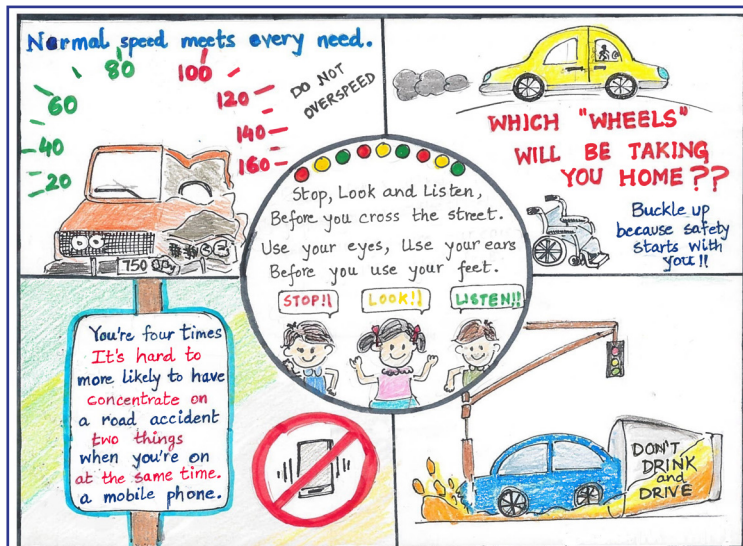 Normal speed meets every need.
20
40
60
80
100
120
140
160
DO NOT
OVERSPEED
WHICH "WHEELS"
WILL BE TAKING
YOU HOME??
Buckle up
because safety
starts with
you!!
Stop, Look and Listen,
Before you cross the street.
Use your eyes, Use your ears
Before you use your feet.
STOP!!
LOOK!!
LISTEN!!
You're four times
It's hard to
more likely to have
concentrate on
a road accident
two things
when you're on
at the same time.
a mobile phone.
DON'T
DRINK
and
DRIVE